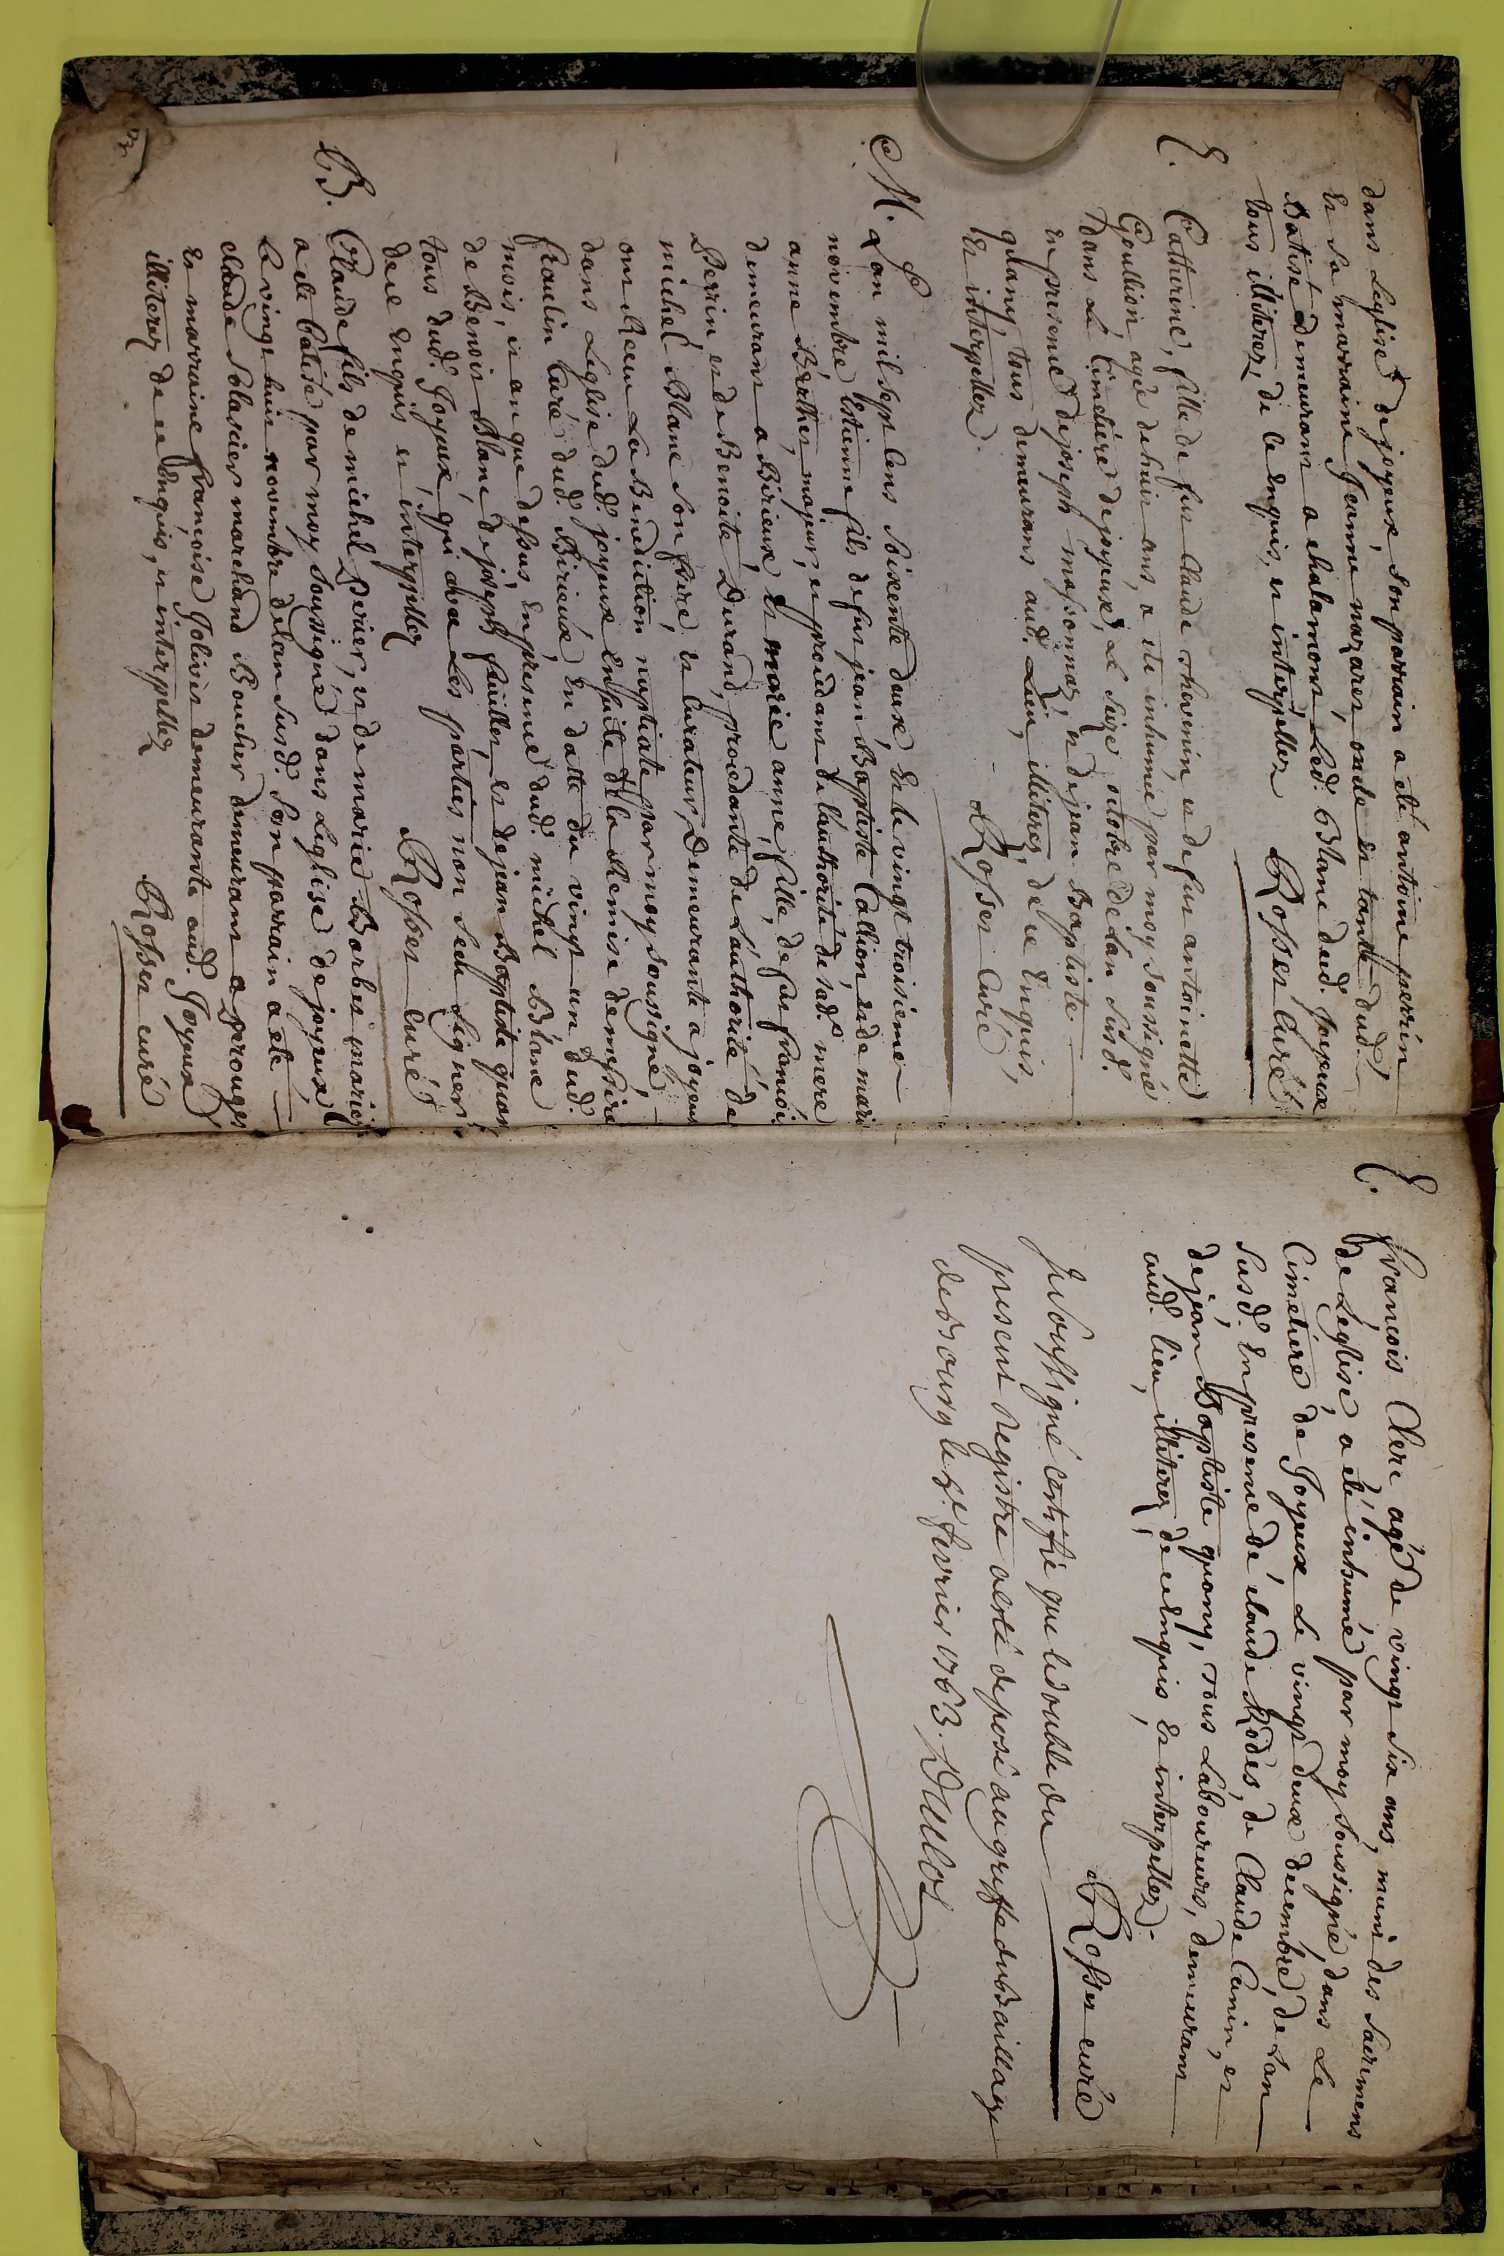 dans Leglise de joyeux, son parrain a été antoine perrin
Et Sa marraine jeanne nazaret, oncle et tante dud.
Batisé demeurant a chalamont, Led. Blanc dud. Joyeux
tous illiterez, de ce enquis, et interpellez Rosset Curé
E. Catherine, fille de feu Claude thevenin, et de feu antoinette
Goullion agé de huit ans, a été inhumé par moy soussigné
dans Le Cimetière de joyeux, Le Seize octobre de Lan Susd.
en presence de joseph massonnaz, et de jean Baptiste
quany, tous demeurans aud. Lieu, illiterez, de ce Enquis,
Et interpellez. Rosset Curé
M. Lan mil sept Cens Soixente deux, Et le vingt troisième
novembre, Estienne fils de feu jean Baptiste Callion, et de marie
anne Berthet, majeur, et procedant de l'authorité de sad. mere
demeurant a Birieux, Et marie anne, fille de feu françois
Perrin et de Benoite Durand, procedante de L'authorité de
michel Blanc Son frere, et Curateur, Demeurante a joyeux
ont Receu La Benediction nuptiale par moy soussigné,
dans Leglise dud. joyeux Ensuite de la Remise de messire
fraulin Curé dud. Birieux, En datte du vingt un dud.
mois, et an que dessus, En presence dud. michel Blanc
de Benoit Blanc de joseph feuillet, et de jean Baptiste quany
tous dud. Joyeux, qui avec Les parties non Sceu Signer
de ce Enquis et interpellez Rosset curé
B. Claude fils de michel Perrier, et de marie Barbet mariez
a été batisé par moy Soussigné dans Leglise de joyeux
Le vingt huit novembre de Lan Susd. Son parrain a été
claude Solascier marchand Boucher demeurant a perouges
Et marraine françoise Jolivet demeurante aud. Joyeux
illiterez de ce Enquis, et interpellez Rosset curé
E. françois Clerc agé de vingt Six ans, muni des Sacremens
de Leglise, a été inhumé par moy soussigné, dans Le
Cimetiere de Joyeux Le vingt deux decembre, de Lan
Susd. En presence de claude Rodet, de Claude Canin, et
de jean Baptiste quany, tous Laboureurs, demeurans
aud. lieu, illiterez, de ce Enquis, Et interpellez.
Rosset curé
Je soussigné certifie que le double du
present registre a esté deposé au greffe du Bailliage
de Bourg le 8e. fevrier 1763. Duclos